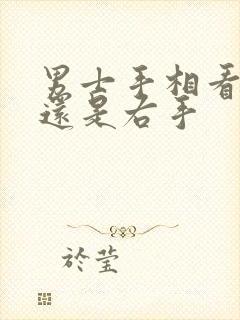 男士手相看
還是右手
於莹